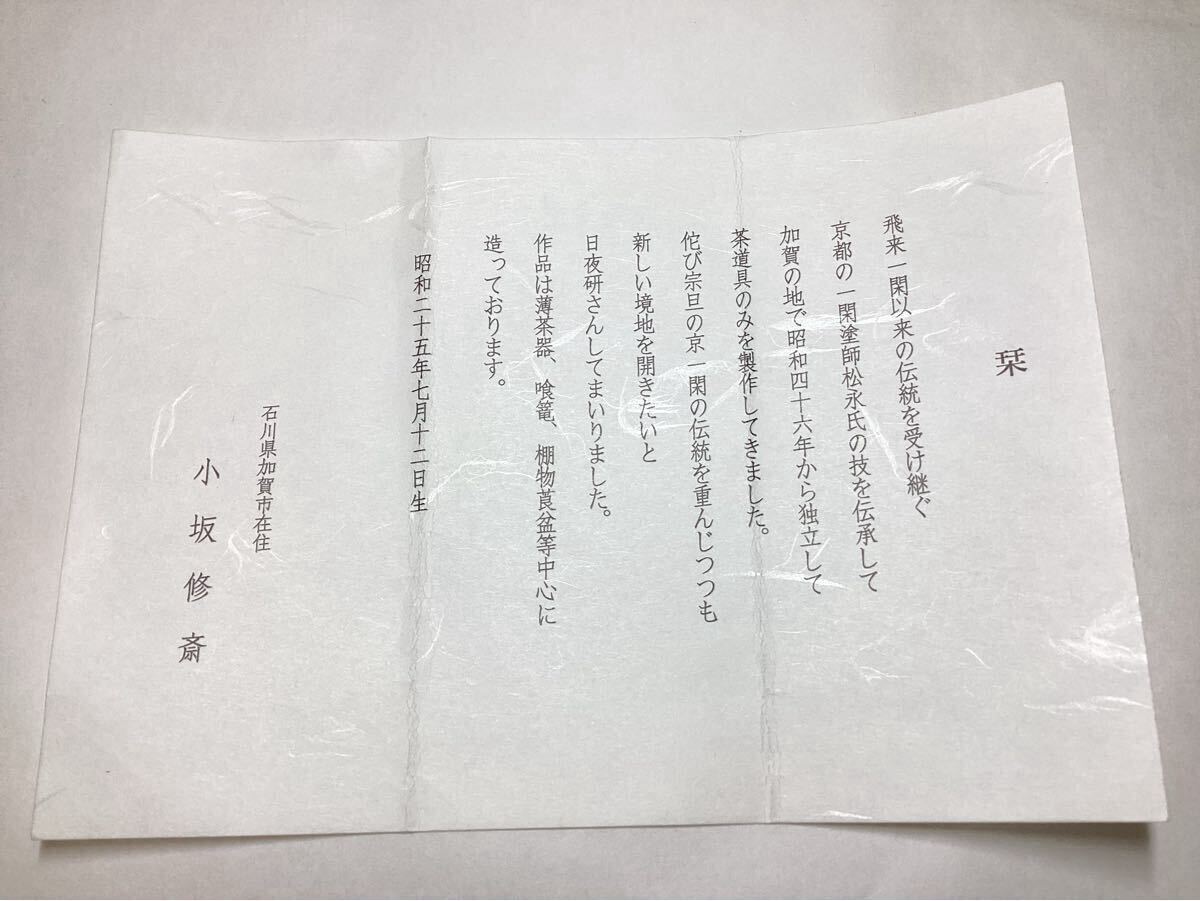 栞
飛来一閑以来の伝統を受け継ぐ
京都の一閑塗師松永氏の技を伝承して
加賀の地で昭和四十六年から独立して
茶道具のみを製作してきました。
侘び宗旦の京一閑の伝統を重んじつつも
新しい境地を開きたいと
日夜研さんしてまいりました。
作品は薄茶器、喰篭、棚物莨盆等中心に
造っております。
昭和二十五年七月十二日生
石川県加賀市在住
小坂修斎